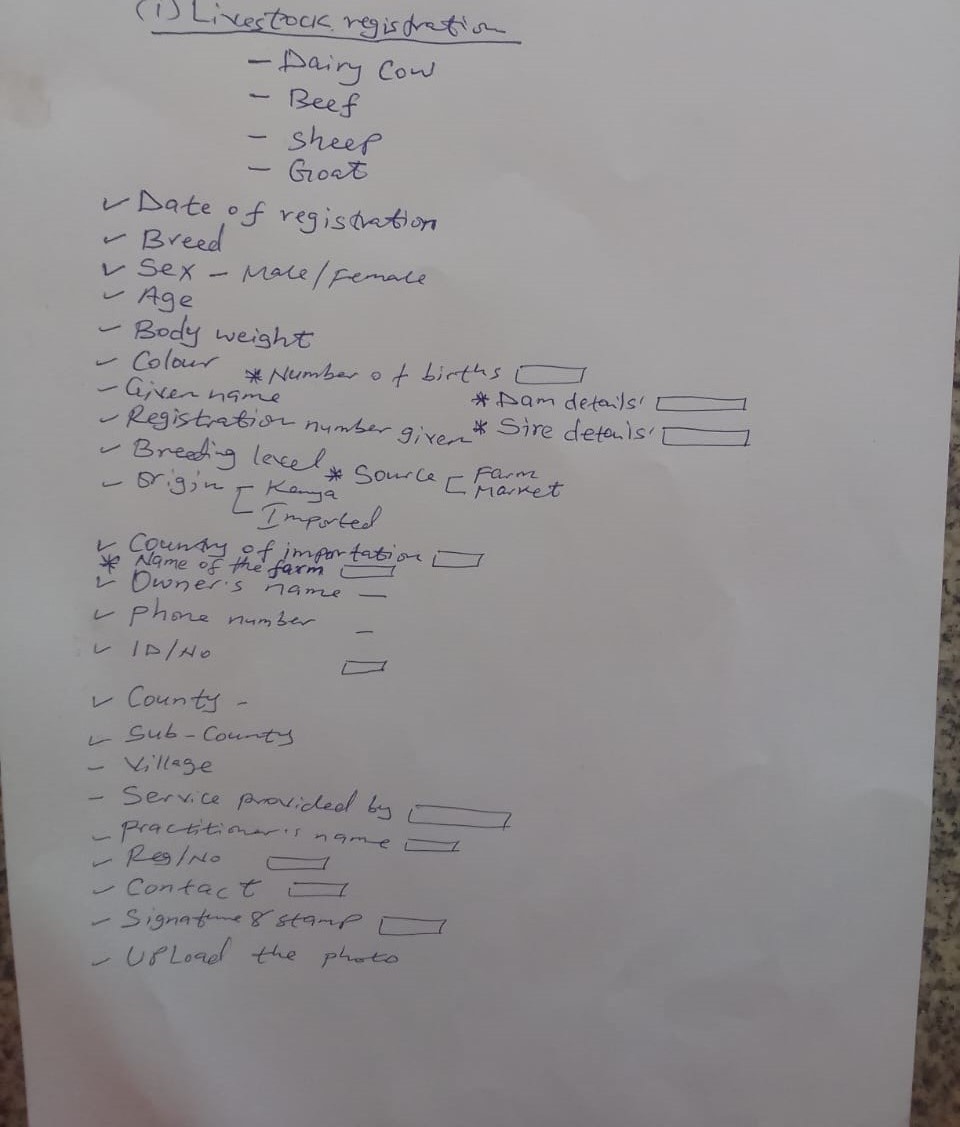 (i) Livestock registration
- Dairy Cow
- Beef
- Sheep
- Goat
✓ Date of registration
✓ Breed
✓ Sex - Male/Female
✓ Age
✓ Body weight
✓ Colour * Number of births
- Given name * Dam details
✓ Registration number given * Sire details
✓ Breeding level * Source [ Farm
Market
✓ Origin [ Kenya
Imported
✓ Country of importation
* Name of the farm
✓ Owner's name -
✓ Phone number -
✓ ID/No
✓ County -
✓ Sub-County
- Village
- Service provided by
- Practitioner's name
✓ Reg/No
✓ Contact
✓ Signature & stamp
✓ Upload the photo